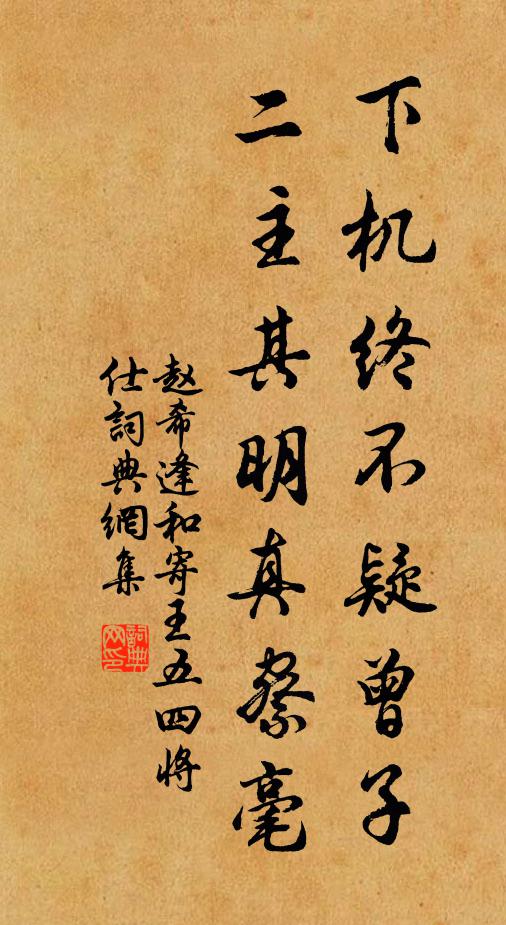 下机终不疑曾子
二主其明真察毫
赵希逢和寄王五四将
仕詞典網集
詞典
网印